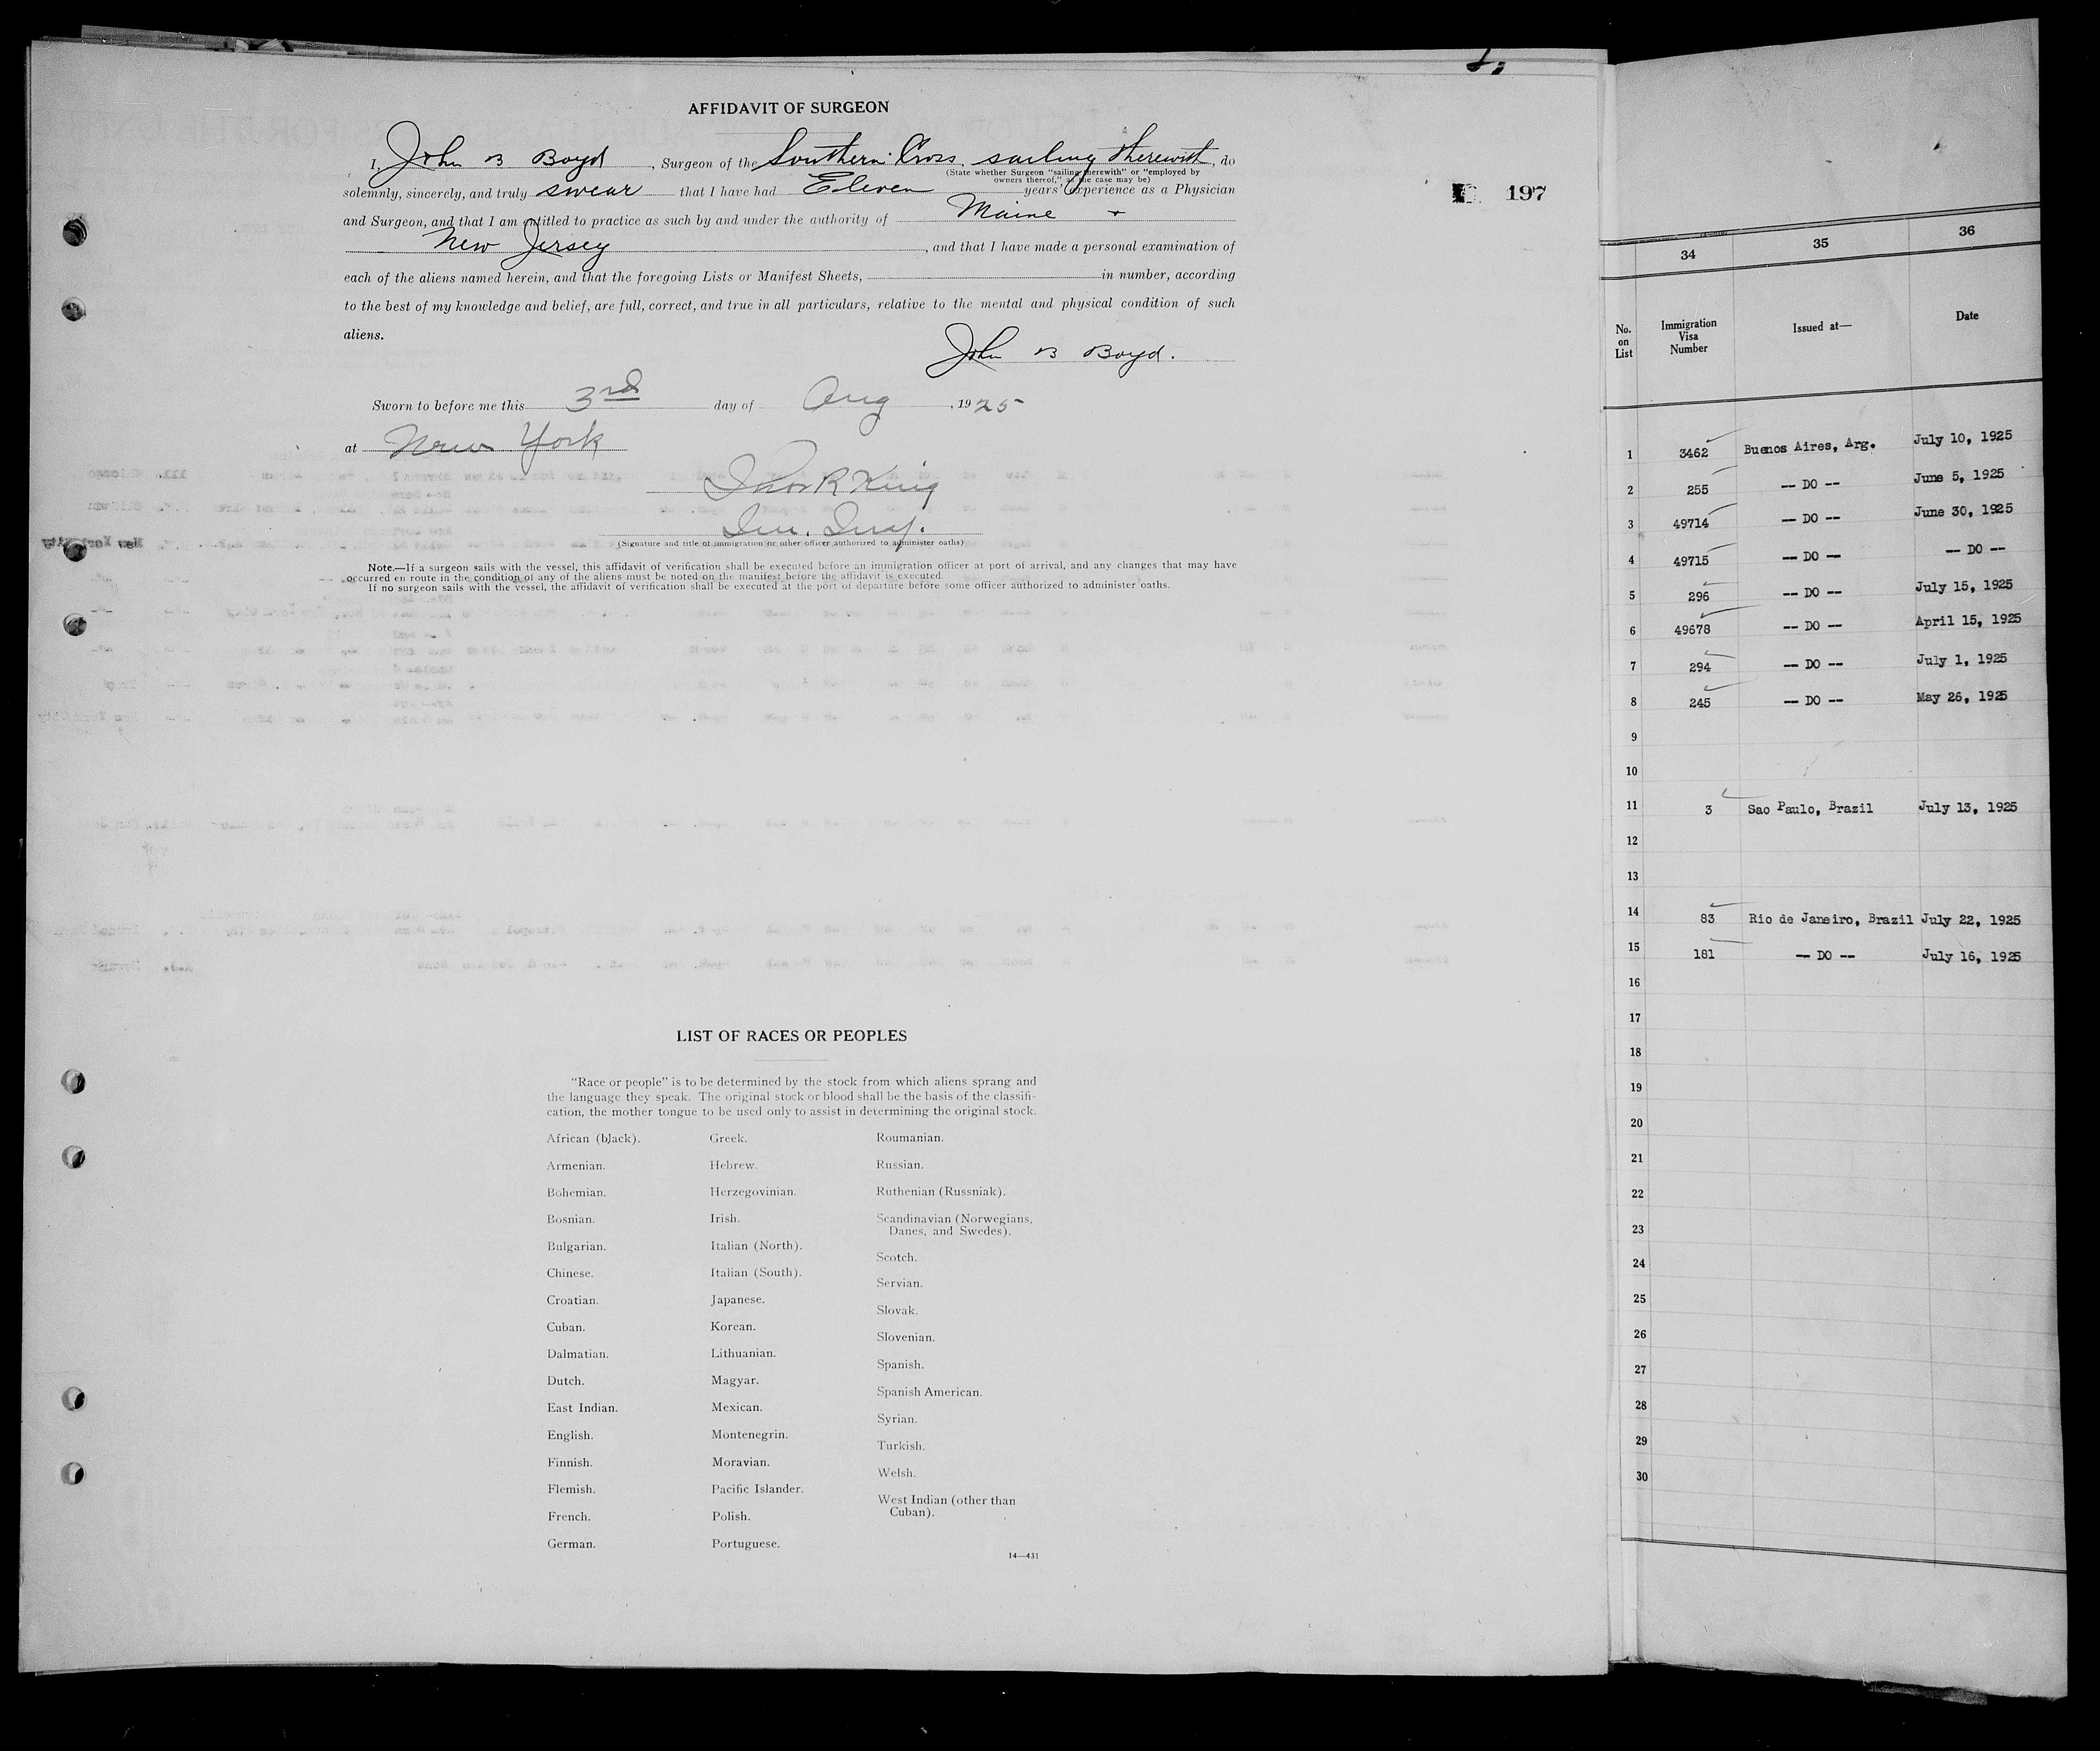 AFFIDAVIT OF SURGEON
I, John B Boyd, Surgeon of the Southern Cross, sailing therewith, do
(State whether Surgeon "sailing therewith" or "employed by
owners thereof," as the case may be)
solemnly, sincerely, and truly swear that I have had Eleven years' experience as a Physician
and Surgeon, and that I am entitled to practice as such by and under the authority of Maine +
New Jersey, and that I have made a personal examination of
each of the aliens named herein, and that the foregoing Lists or Manifest Sheets, in number, according
to the best of my knowledge and belief, are full, correct, and true in all particulars, relative to the mental and physical condition of such
aliens.
John B Boyd.
Sworn to before me this 3rd day of Aug, 1925
at New York
Thos R King
Im. Insp.
(Signature and title of immigration or other officer authorized to administer oaths)
Note.—If a surgeon sails with the vessel, this affidavit of verification shall be executed before an immigration officer at port of arrival, and any changes that may have
occurred en route in the condition of any of the aliens must be noted on the manifest before the affidavit is executed.
If no surgeon sails with the vessel, the affidavit of verification shall be executed at the port of departure before some officer authorized to administer oaths.
LIST OF RACES OR PEOPLES
"Race or people" is to be determined by the stock from which aliens sprang and
the language they speak. The original stock or blood shall be the basis of the classifi-
cation, the mother tongue to be used only to assist in determining the original stock.
African (black).
Armenian.
Bohemian.
Bosnian.
Bulgarian.
Chinese.
Croatian.
Cuban.
Dalmatian.
Dutch.
East Indian.
English.
Finnish.
Flemish.
French.
German.
Greek.
Hebrew.
Herzegovinian.
Irish.
Italian (North).
Italian (South).
Japanese.
Korean.
Lithuanian.
Magyar.
Mexican.
Montenegrin.
Moravian.
Pacific Islander.
Polish.
Portuguese.
Roumanian.
Russian.
Ruthenian (Russniak).
Scandinavian (Norwegians,
Danes, and Swedes).
Scotch.
Servian.
Slovak.
Slovenian.
Spanish.
Spanish American.
Syrian.
Turkish.
Welsh.
West Indian (other than
Cuban).
14—431
197
34 35 36
No. on List Immigration Visa Number Issued at— Date
1 3462 Buenos Aires, Arg. July 10, 1925
2 255 -- DO -- June 5, 1925
3 49714 -- DO -- June 30, 1925
4 49715 -- DO -- -- DO --
5 296 -- DO -- July 15, 1925
6 49678 -- DO -- April 15, 1925
7 294 -- DO -- July 1, 1925
8 245 -- DO -- May 26, 1925
9
10
11 3 Sao Paulo, Brazil July 13, 1925
12
13
14 83 Rio de Janeiro, Brazil July 22, 1925
15 181 -- DO -- July 16, 1925
16
17
18
19
20
21
22
23
24
25
26
27
28
29
30